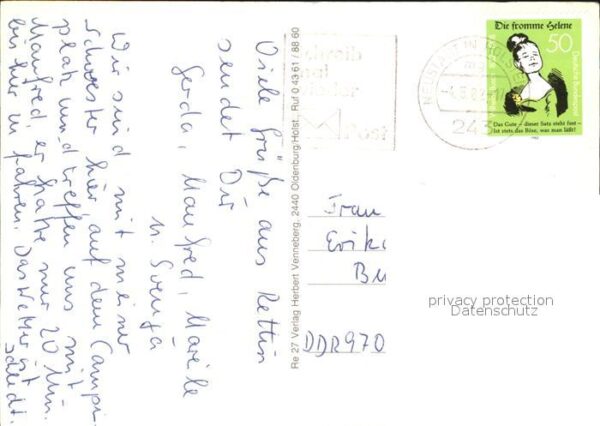 Viele Grüße aus Rettin
sendet Dir
Gerda, Manfred, Mareile
u. Svenja
Wir sind mit meiner
Schwester hier auf dem Campi
platz und treffen uns mit
Manfred er hatte nur 20 Min.
bis hier zu fahren. Das Wetter ist
schlecht.
Re 27 Verlag Herbert Venneberg, 2440 Oldenburg/Holst., Ruf 0 43 61 / 88 60
Schreib
mal
wieder
Post
NEUSTADT IN HOLST
243
Die fromme Helene
50
Deutsche Bundespost
Das Gute – dieser Satz steht fest –
Ist stets das Böse, was man läßt!
Frau
Erika
Bu
DDR 970
privacy protection
Datenschutz